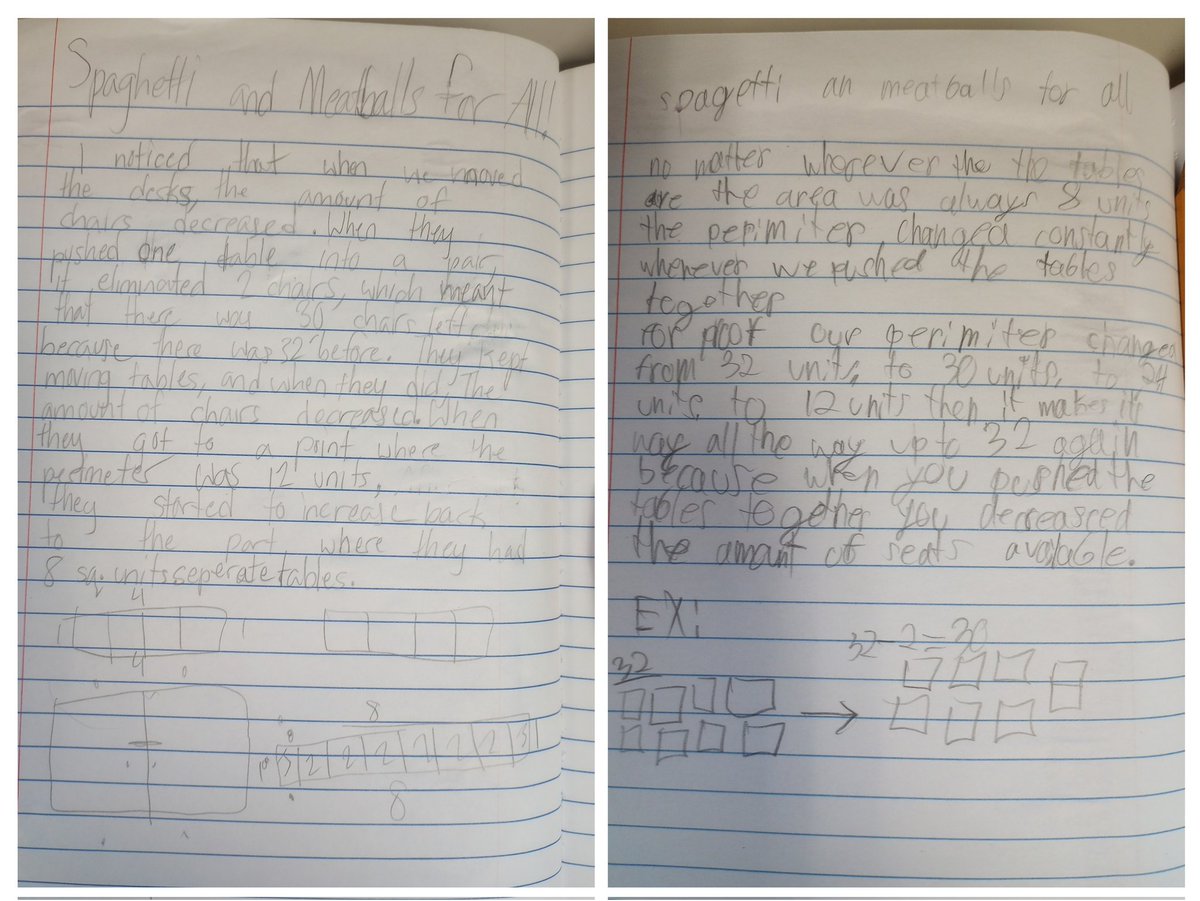 Spaghetti and Meatballs for All!
I noticed that when we moved
the desks, the amount of
chairs decreased. When they
pushed one table into a pair,
it eliminated 2 chairs, which meant
that there was 30 chairs left
because there was 32 before. They kept
moving tables, and when they did, The
amount of chairs decreased. When
they got to a point where the
perimeter was 12 units,
they started to increase back
to the part where they had
8 sq. units seperate tables.
4
4
8
3 2 2 2 2 2 2 3
8
spagetti an meatballs for all
no matter wherever the the tables
are the area was always 8 units
the perimiter changed constantly
whenever we pushed the tables
together
for proof our perimiter changed
from 32 units, to 30 units, to 24
units to 12 units then it makes it's
way all the way up to 32 again
because when you pushed the
tables together you decreased
the amant of seats available.
EX:
32-2=30
32